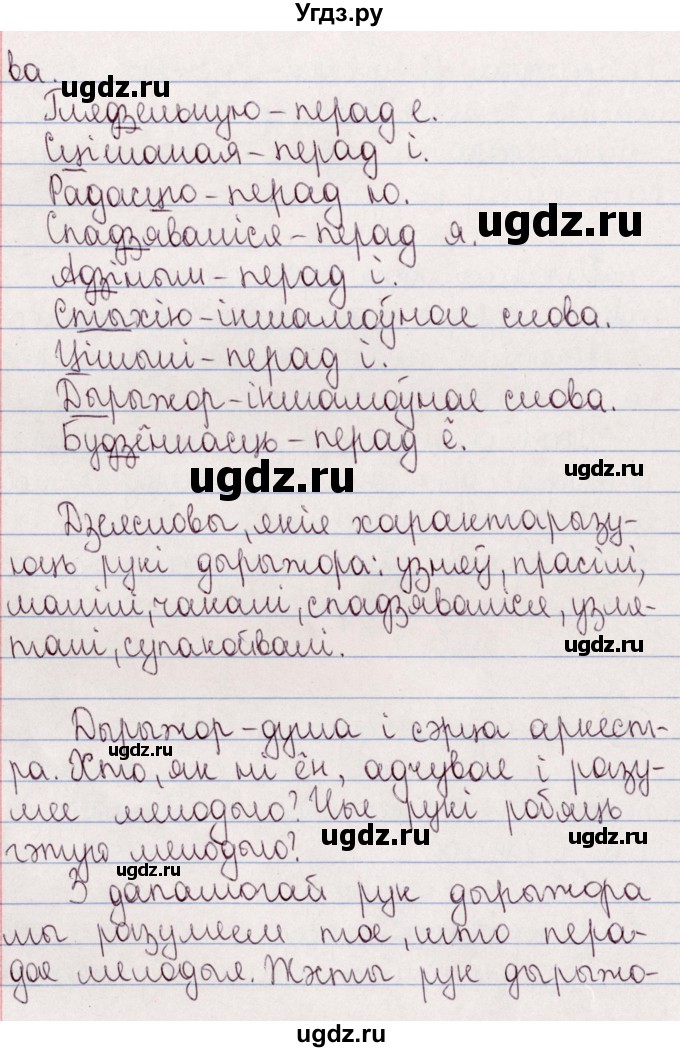 Угдз.ру
ва.
ugdz.ru
Глядзельную – перад е.
Сцішаная – перад і.
Радасцю – перад ю.
ugdz.ru
Спадзяваліся – перад я.
Адзіным – перад і.
Стыхію – іншамоўнае слова.
Цішыні – перад і.
Дырыжор – іншамоўнае слова.
Будзённасць – перад ё.
ugdz.ru
ugdz.ru
Дзеясловы, якія характарызу-
юць рукі дырыжора: узняў, прасілі,
малілі, чакалі, спадзяваліся, узля-
талі, супакойвалі.
ugdz.ru
Дырыжор – душа і сэрца аркест-
ugdz.ru
ра. Хто, як ні ён, адчувае і разу-
мее мелодыю? Чые рукі робяць
ugdz.ru
ugdz.ru
гэтую мелодыю?
ugdz.ru
З дапамогай рук дырыжора
мы разумеем тое, што пера-
дае мелодыя. Жэсты рук дырыжо-
ugdz.ru